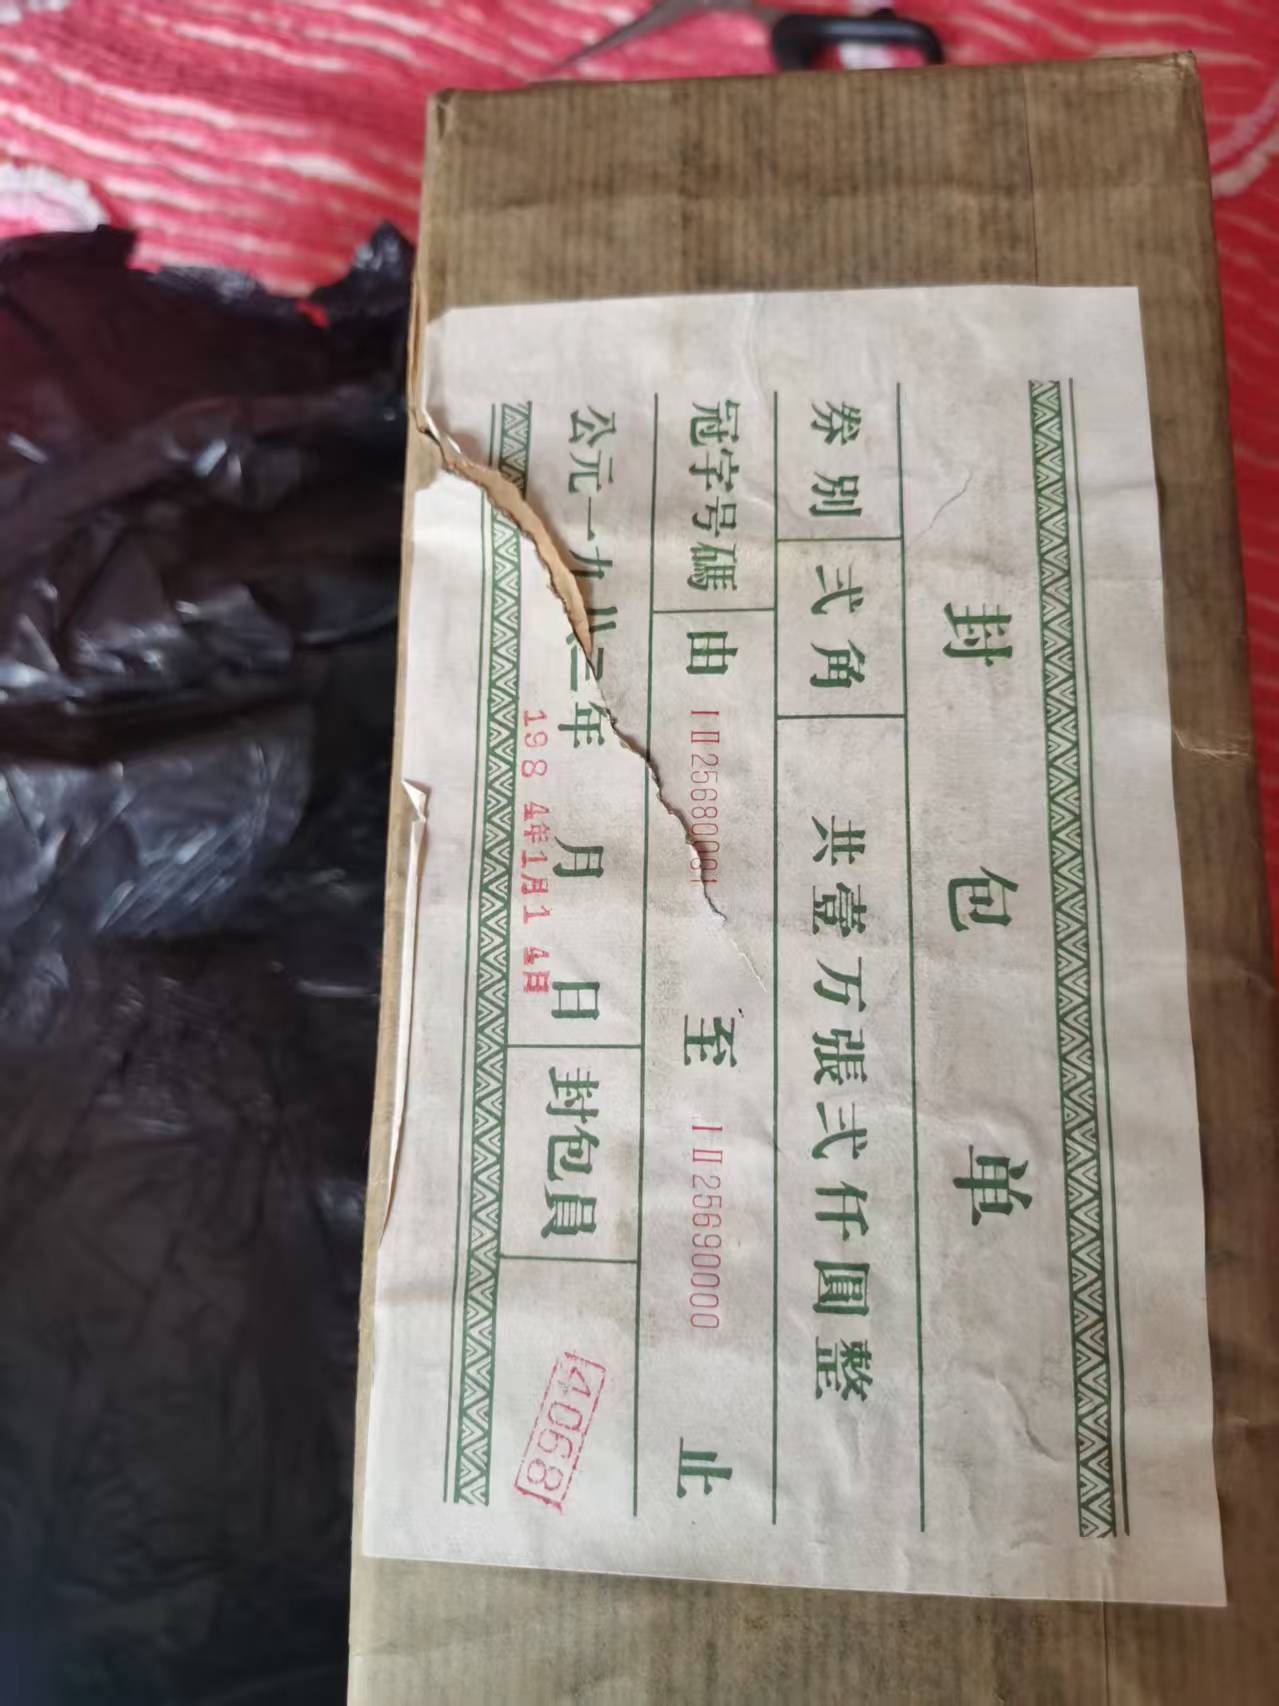 封包单
券别 弍角 共壹万張弍仟圓整
冠字号碼 由 ⅠⅡ25680001 至 ⅠⅡ25690000 止
公元一九八二年 月 日 封包員 4068
1984年1月14日